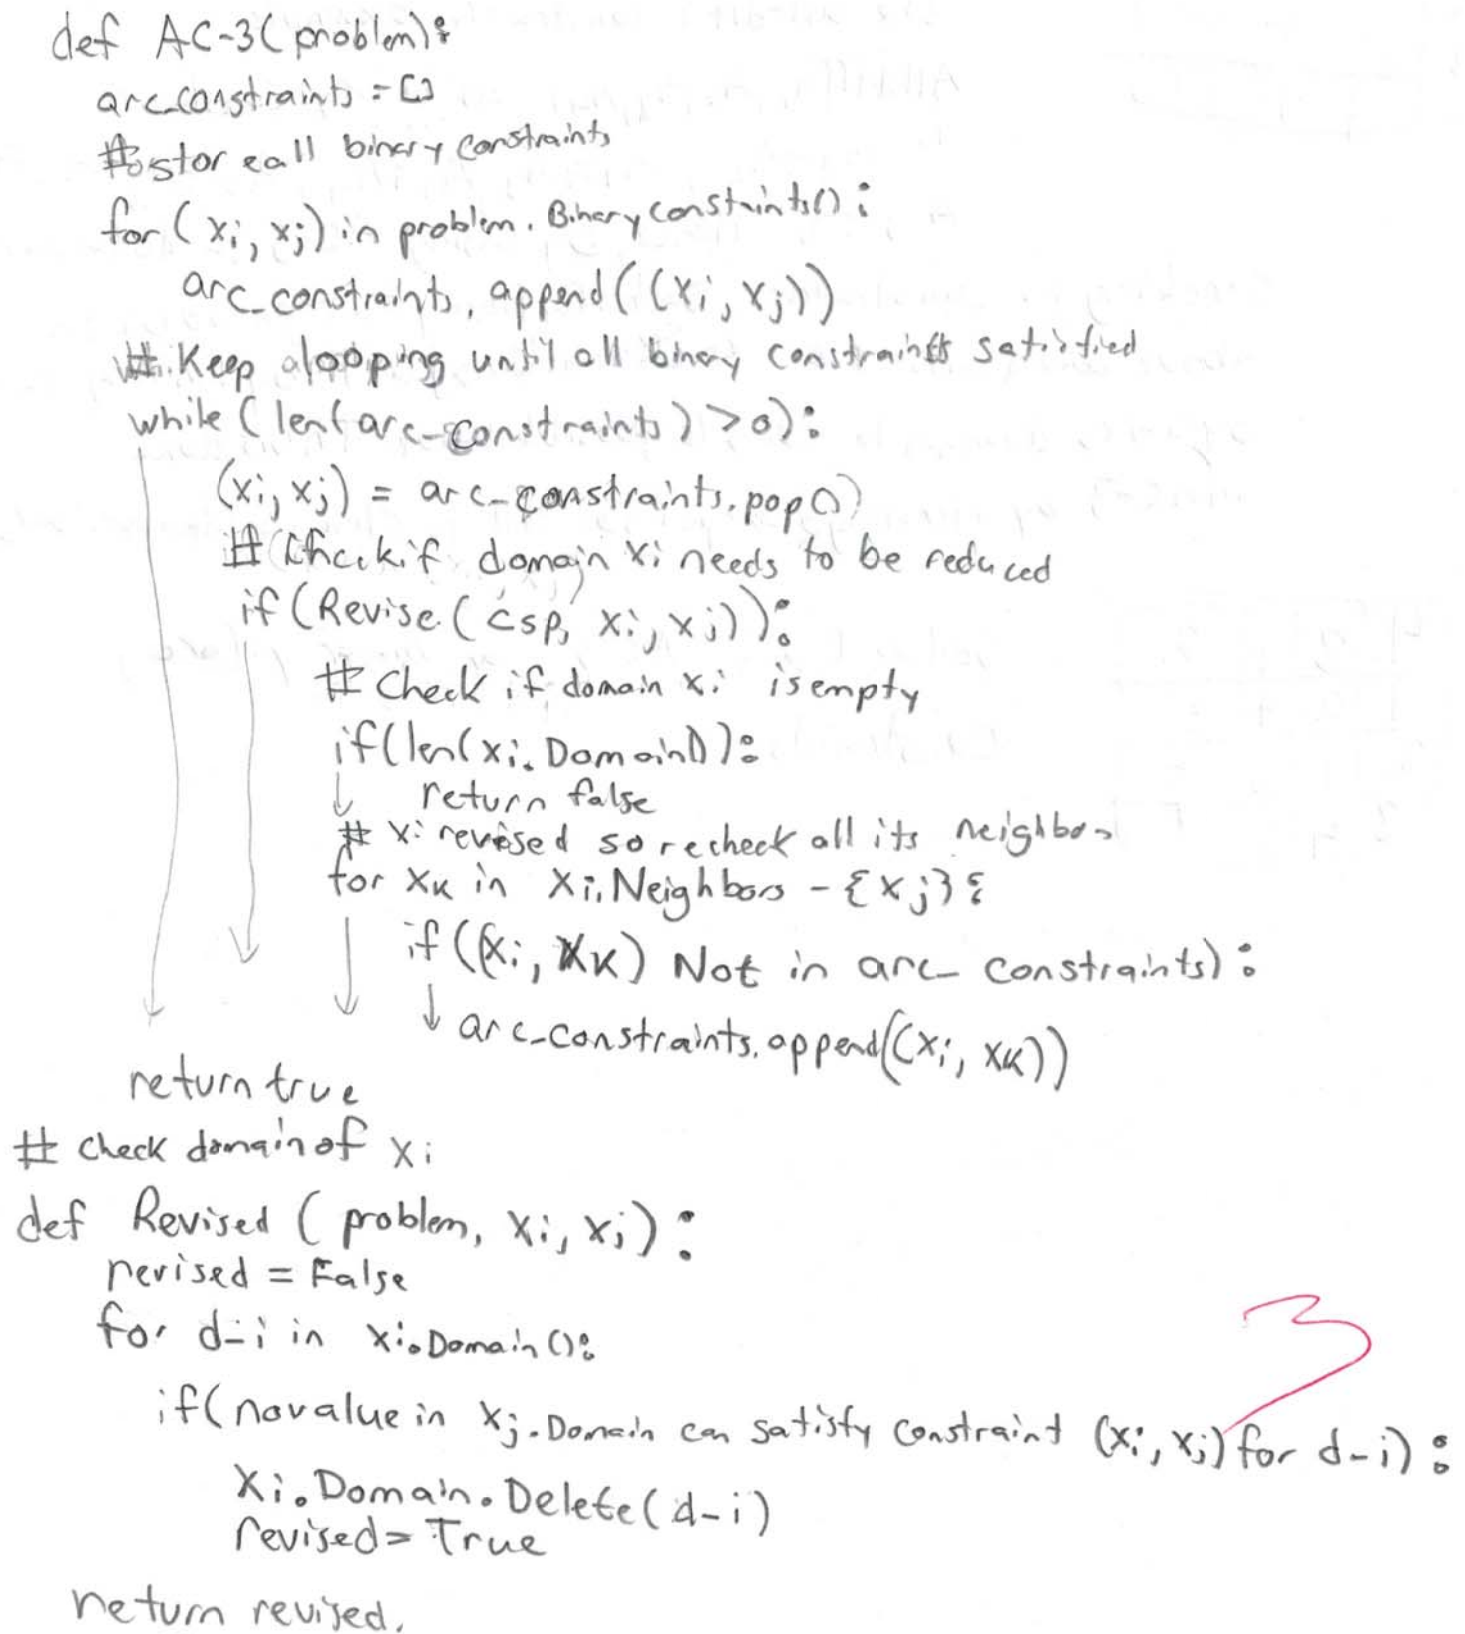 def AC-3(problem):
arc_constraints = []
# stor eall binary constraints
for (xi, xj) in problem. Binary Constraints():
arc_constraints. append((xi, xj))
# Keep looping until all binary constraints satisfied
while (len(arc-constraints) > 0):
(xi, xj) = arc-constraints.pop()
# Check if domain xi needs to be reduced
if (Revise(csp, xi, xj)):
# Check if domain xi is empty
if(len(xi. Domain)):
return false
# xi revised so recheck all its neighbors
for xk in Xi.Neighbors - {xj}:
if ((xi, xk) Not in arc- constraints):
arc-constraints.append((xi, xk))
return true
# check domain of xi
def Revised (problem, xi, xj):
revised = False
for d-i in xi.Domain():
if(no value in xj.Domain can satisfy constraint (xi, xj) for d-i):
Xi.Domain.Delete(d-i)
revised = True
return revised.
3